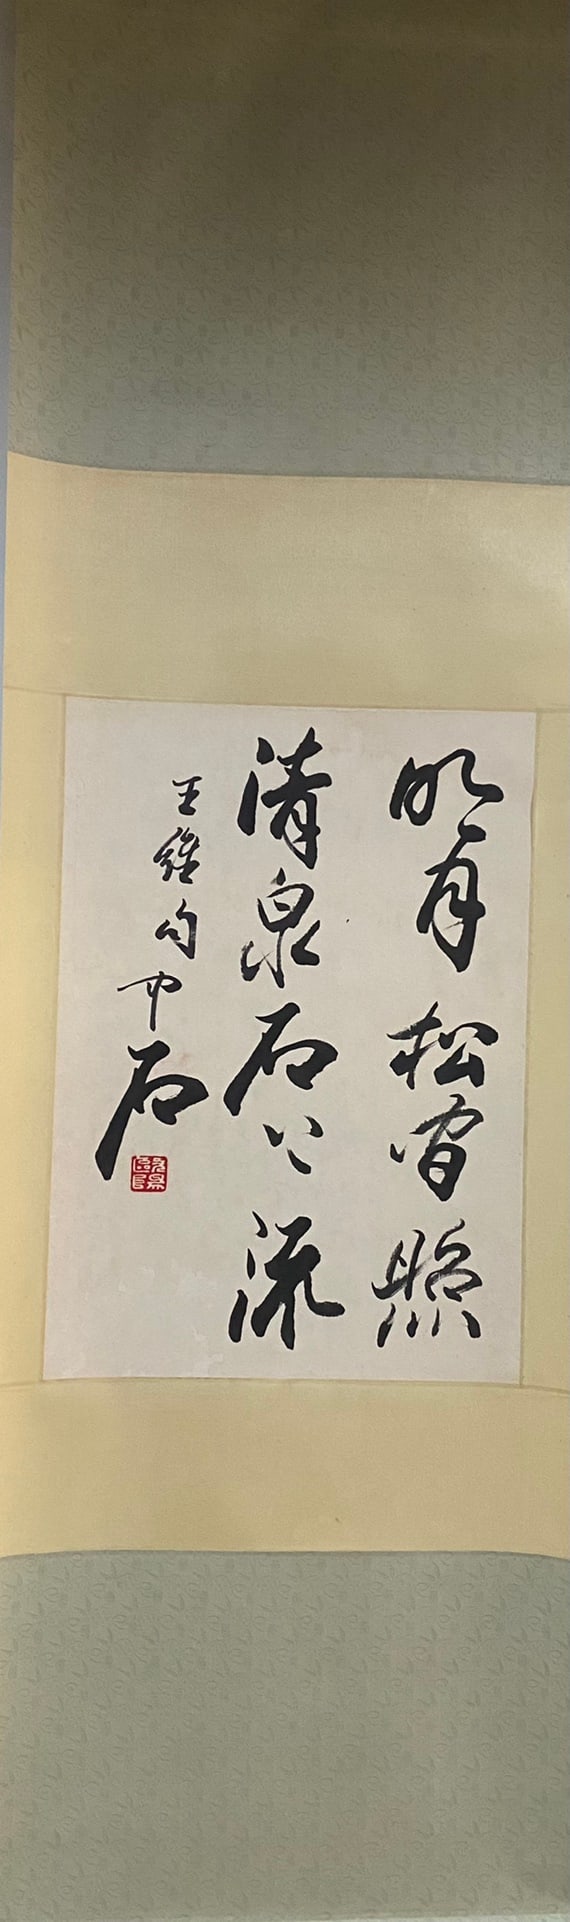 明月松间照
清泉石上流
王維句中石